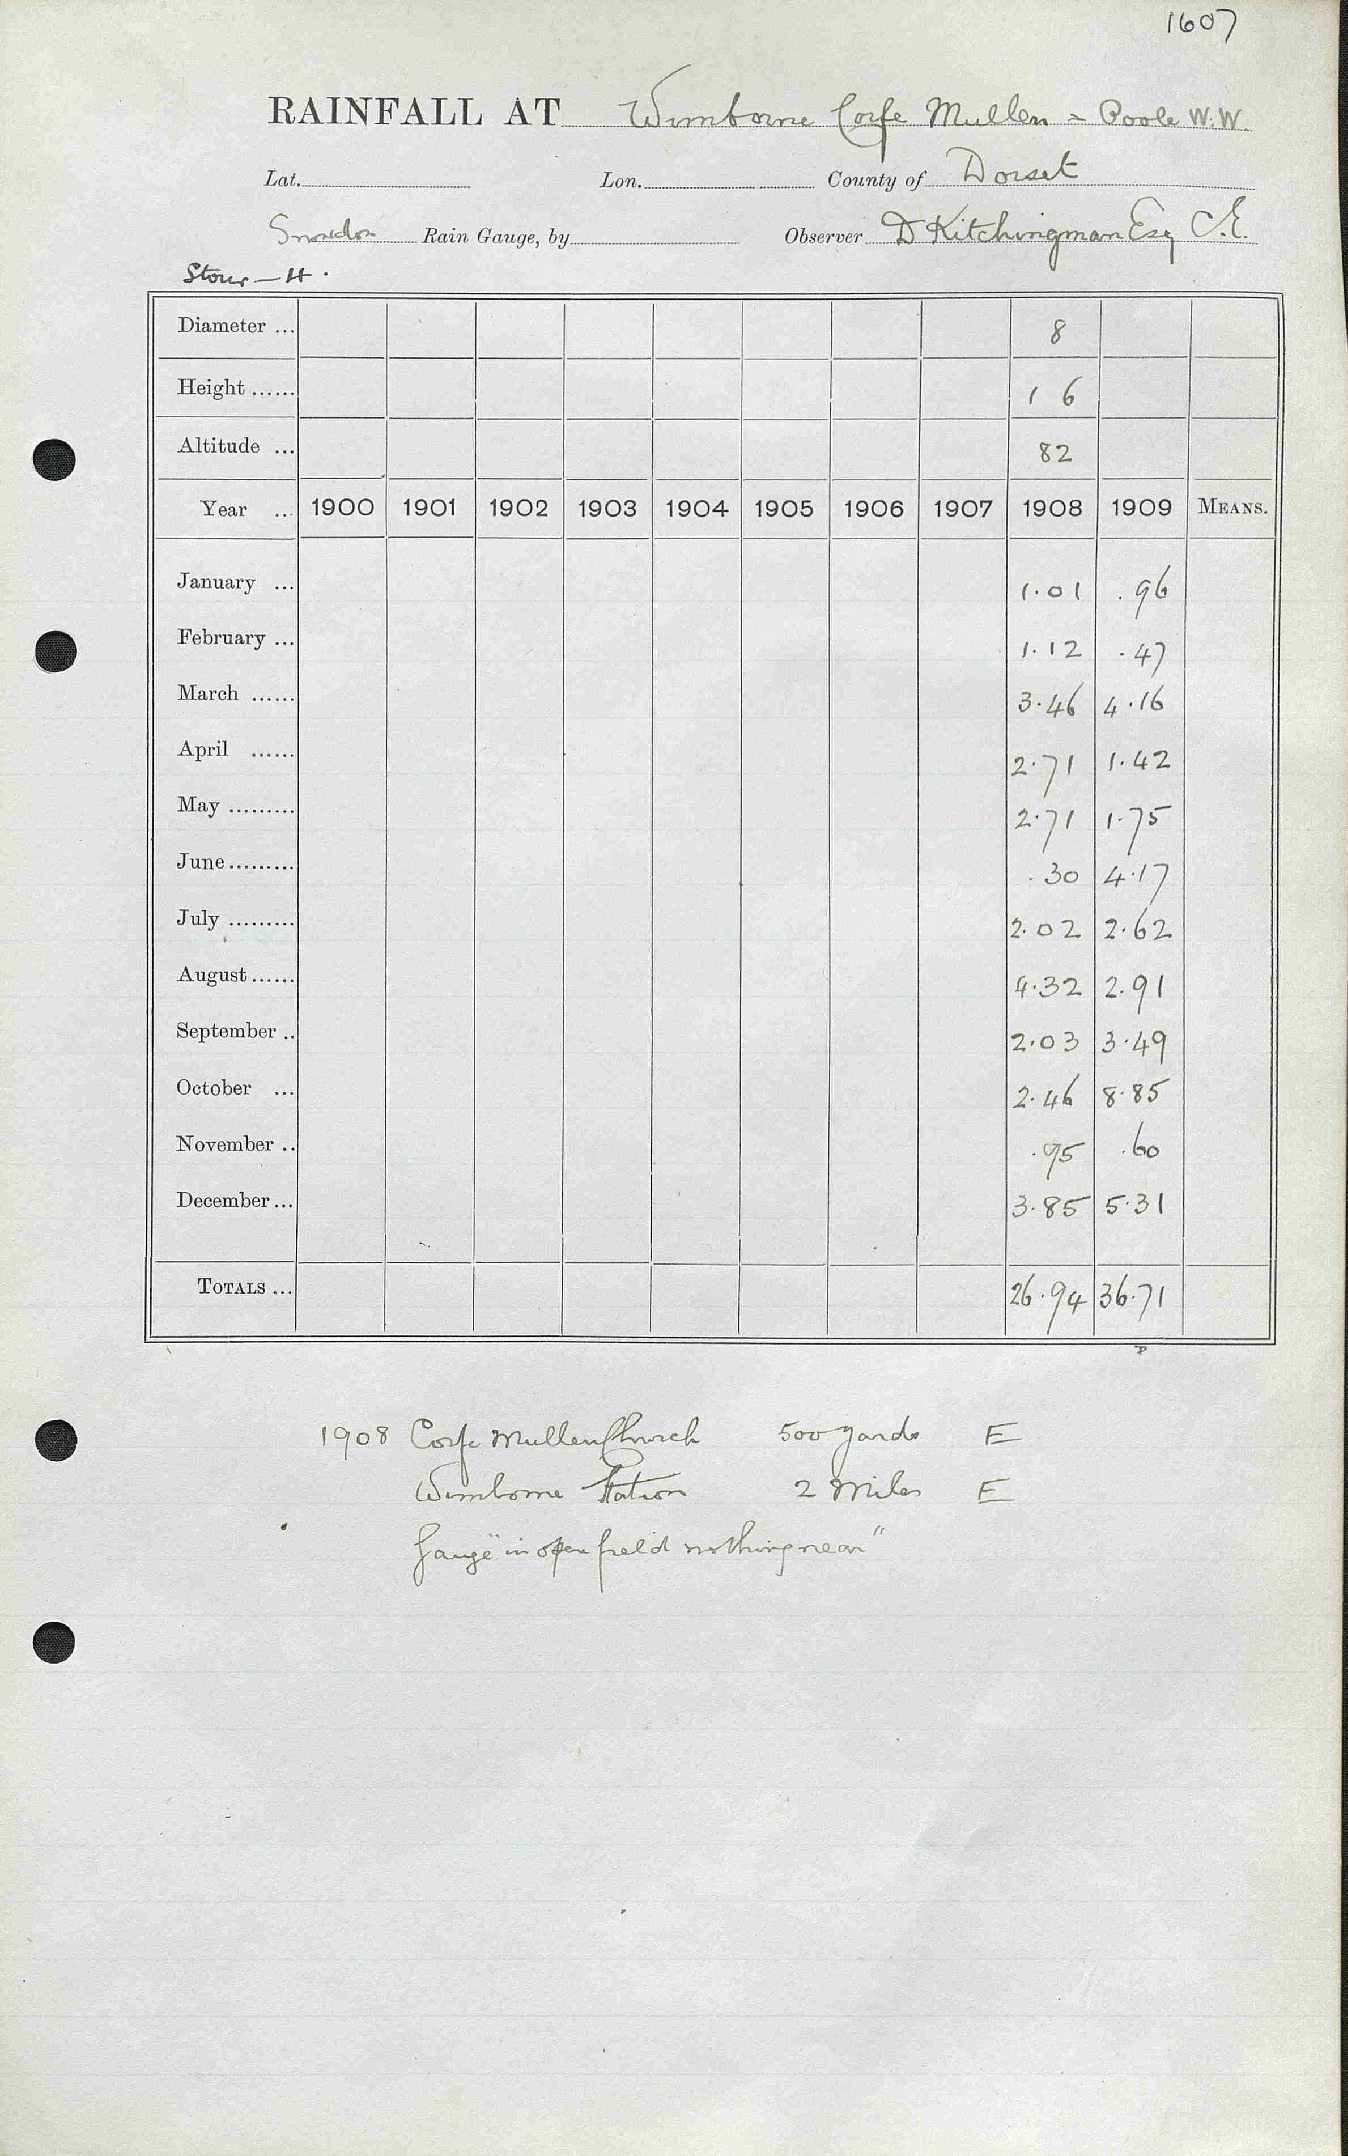 1607
RAINFALL AT Wimborne Corfe Mullen - Poole W.W.
Lat. Lon. County of Dorset
Snowdon Rain Gauge, by Observer D Kitchingman Esq C.E.
Stour — H.
Diameter ... 8
Height ...... 1 6
Altitude ... 82
Year ... 1900 1901 1902 1903 1904 1905 1906 1907 1908 1909 MEANS.
January ... 1.01 .96
February ... 1.12 .47
March ...... 3.46 4.16
April ...... 2.71 1.42
May ......... 2.71 1.75
June ......... .30 4.17
July ......... 2.02 2.62
August ...... 4.32 2.91
September .. 2.03 3.49
October ... 2.46 8.85
November .. .95 .60
December ... 3.85 5.31
TOTALS ... 26.94 36.71
1908 Corfe Mullen Church 500 yards E
Wimborne Station 2 Miles E
Gauge "in open field nothing near"